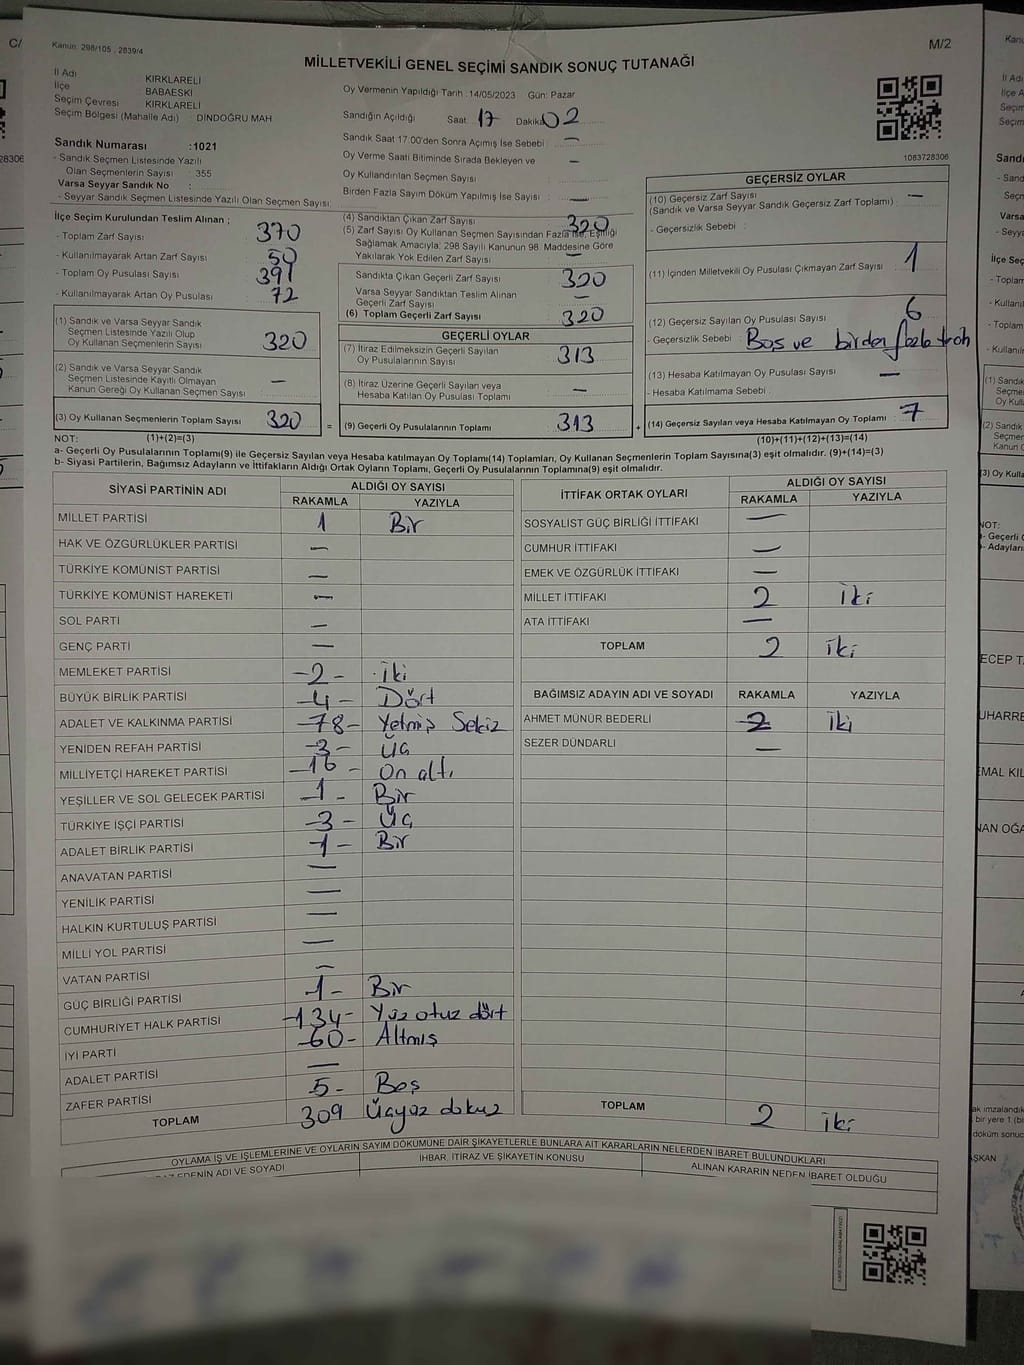 Kanun: 298/105 , 2839/4
M/2
MİLLETVEKİLİ GENEL SEÇİMİ SANDIK SONUÇ TUTANAĞI
İl Adı KIRKLARELİ
İlçe BABAESKİ
Seçim Çevresi KIRKLARELİ
Seçim Bölgesi (Mahalle Adı) : DİNDOĞRU MAH
Sandık Numarası :1021
- Sandık Seçmen Listesinde Yazılı
Olan Seçmenlerin Sayısı : 355
Varsa Seyyar Sandık No :
- Seyyar Sandık Seçmen Listesinde Yazılı Olan Seçmen Sayısı:
Oy Vermenin Yapıldığı Tarih :14/05/2023 Gün: Pazar
Sandığın Açıldığı Saat 17 Dakika 02
Sandık Saat 17:00'den Sonra Açımış İse Sebebi : —
Oy Verme Saati Bitiminde Sırada Bekleyen ve —
Oy Kullandırılan Seçmen Sayısı
Birden Fazla Sayım Döküm Yapılmış İse Sayısı : —
1083728306
İlçe Seçim Kurulundan Teslim Alınan ;
- Toplam Zarf Sayısı : 370
- Kullanılmayarak Artan Zarf Sayısı : 50
- Toplam Oy Pusulası Sayısı : 391
- Kullanılmayarak Artan Oy Pusulası : 72
(1) Sandık ve Varsa Seyyar Sandık
Seçmen Listesinde Yazılı Olup
Oy Kullanan Seçmenlerin Sayısı 320
(2) Sandık ve Varsa Seyyar Sandık
Seçmen Listesinde Kayıtlı Olmayan
Kanun Gereği Oy Kullanan Seçmen Sayısı —
(3) Oy Kullanan Seçmenlerin Toplam Sayısı 320 =
(4) Sandıktan Çıkan Zarf Sayısı 320
(5) Zarf Sayısı Oy Kullanan Seçmen Sayısından Fazla İse, Eşitliği
Sağlamak Amacıyla; 298 Sayılı Kanunun 98. Maddesine Göre
Yakılarak Yok Edilen Zarf Sayısı —
Sandıkta Çıkan Geçerli Zarf Sayısı 320
Varsa Seyyar Sandıktan Teslim Alınan
Geçerli Zarf Sayısı —
(6) Toplam Geçerli Zarf Sayısı 320
GEÇERLİ OYLAR
(7) İtiraz Edilmeksizin Geçerli Sayılan
Oy Pusulalarının Sayısı 313
(8) İtiraz Üzerine Geçerli Sayılan veya
Hesaba Katılan Oy Pusulası Toplamı —
(9) Geçerli Oy Pusulalarının Toplamı 313 +
GEÇERSİZ OYLAR
(10) Geçersiz Zarf Sayısı —
(Sandık ve Varsa Seyyar Sandık Geçersiz Zarf Toplamı) :
- Geçersizlik Sebebi :
(11) İçinden Milletvekili Oy Pusulası Çıkmayan Zarf Sayısı 1
(12) Geçersiz Sayılan Oy Pusulası Sayısı 6
- Geçersizlik Sebebi : Boş ve birden
(13) Hesaba Katılmayan Oy Pusulası Sayısı —
- Hesaba Katılmama Sebebi :
(14) Geçersiz Sayılan veya Hesaba Katılmayan Oy Toplamı 7
NOT: (1)+(2)=(3) (10)+(11)+(12)+(13)=(14)
a- Geçerli Oy Pusulalarının Toplamı(9) ile Geçersiz Sayılan veya Hesaba katılmayan Oy Toplamı(14) Toplamları, Oy Kullanan Seçmenlerin Toplam Sayısına(3) eşit olmalıdır. (9)+(14)=(3)
b- Siyasi Partilerin, Bağımsız Adayların ve İttifakların Aldığı Ortak Oyların Toplamı, Geçerli Oy Pusulalarının Toplamına(9) eşit olmalıdır.
SİYASİ PARTİNİN ADI ALDIĞI OY SAYISI
RAKAMLA YAZIYLA
MİLLET PARTİSİ 1 Bir
HAK VE ÖZGÜRLÜKLER PARTİSİ —
TÜRKİYE KOMÜNİST PARTİSİ —
TÜRKİYE KOMÜNİST HAREKETİ —
SOL PARTİ —
GENÇ PARTİ —
MEMLEKET PARTİSİ -2- İki
BÜYÜK BİRLİK PARTİSİ -4- Dört
ADALET VE KALKINMA PARTİSİ -78- Yetmiş Sekiz
YENİDEN REFAH PARTİSİ -3- Üç
MİLLİYETÇİ HAREKET PARTİSİ -16- On altı
YEŞİLLER VE SOL GELECEK PARTİSİ -1- Bir
TÜRKİYE İŞÇİ PARTİSİ -3- Üç
ADALET BİRLİK PARTİSİ -1- Bir
ANAVATAN PARTİSİ —
YENİLİK PARTİSİ —
HALKIN KURTULUŞ PARTİSİ —
MİLLİ YOL PARTİSİ —
VATAN PARTİSİ —
GÜÇ BİRLİĞİ PARTİSİ -1- Bir
CUMHURİYET HALK PARTİSİ -134- Yüz otuz dört
İYİ PARTİ -60- Altmış
ADALET PARTİSİ —
ZAFER PARTİSİ 5- Beş
TOPLAM 309 Üçyüz dokuz
İTTİFAK ORTAK OYLARI ALDIĞI OY SAYISI
RAKAMLA YAZIYLA
SOSYALİST GÜÇ BİRLİĞİ İTTİFAKI —
CUMHUR İTTİFAKI —
EMEK VE ÖZGÜRLÜK İTTİFAKI —
MİLLET İTTİFAKI 2 İki
ATA İTTİFAKI —
TOPLAM 2 İki
BAĞIMSIZ ADAYIN ADI VE SOYADI RAKAMLA YAZIYLA
AHMET MÜNÜR BEDERLİ 2 İki
SEZER DÜNDARLI —
TOPLAM 2 İki
OYLAMA İŞ VE İŞLEMLERİNE VE OYLARIN SAYIM DÖKÜMÜNE DAİR ŞİKAYETLERLE BUNLARA AİT KARARLARIN NELERDEN İBARET BULUNDUKLARI
EDENİN ADI VE SOYADI
İHBAR, İTİRAZ VE ŞİKAYETİN KONUSU
ALINAN KARARIN NEDEN İBARET OLDUĞU